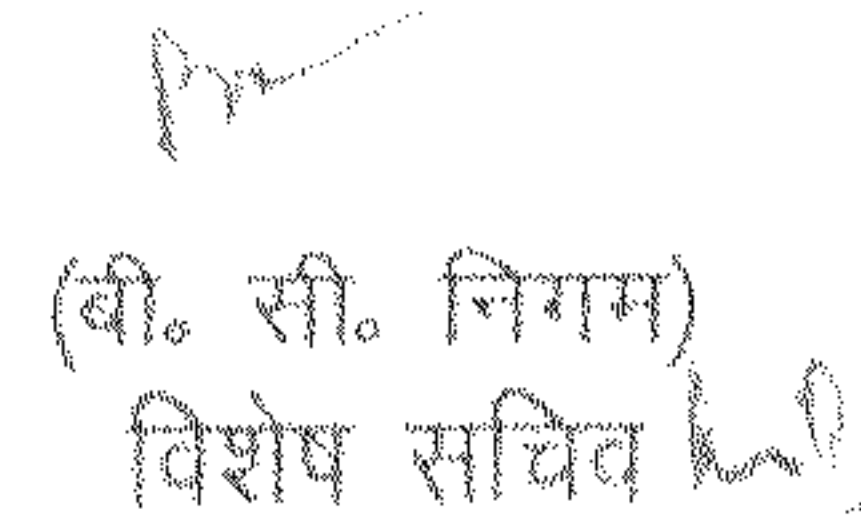 (बी. सी. निगम)
विशेष सचिव